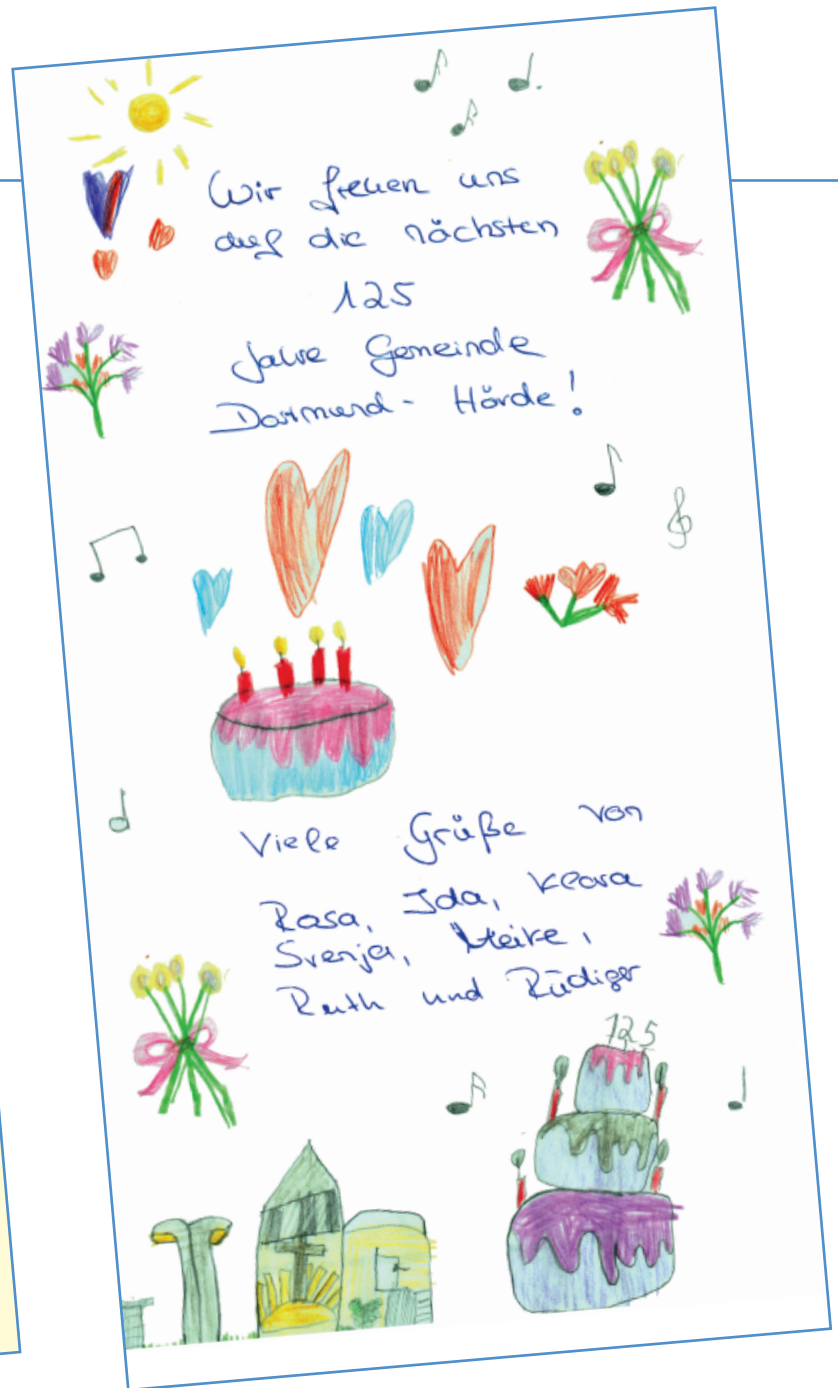 Wir freuen uns
auf die nächsten
125
Jahre Gemeinde
Dortmund- Hörde!
Viele Grüße von
Rosa, Ida, Klara
Svenja, Meike,
Ruth und Rüdiger
125